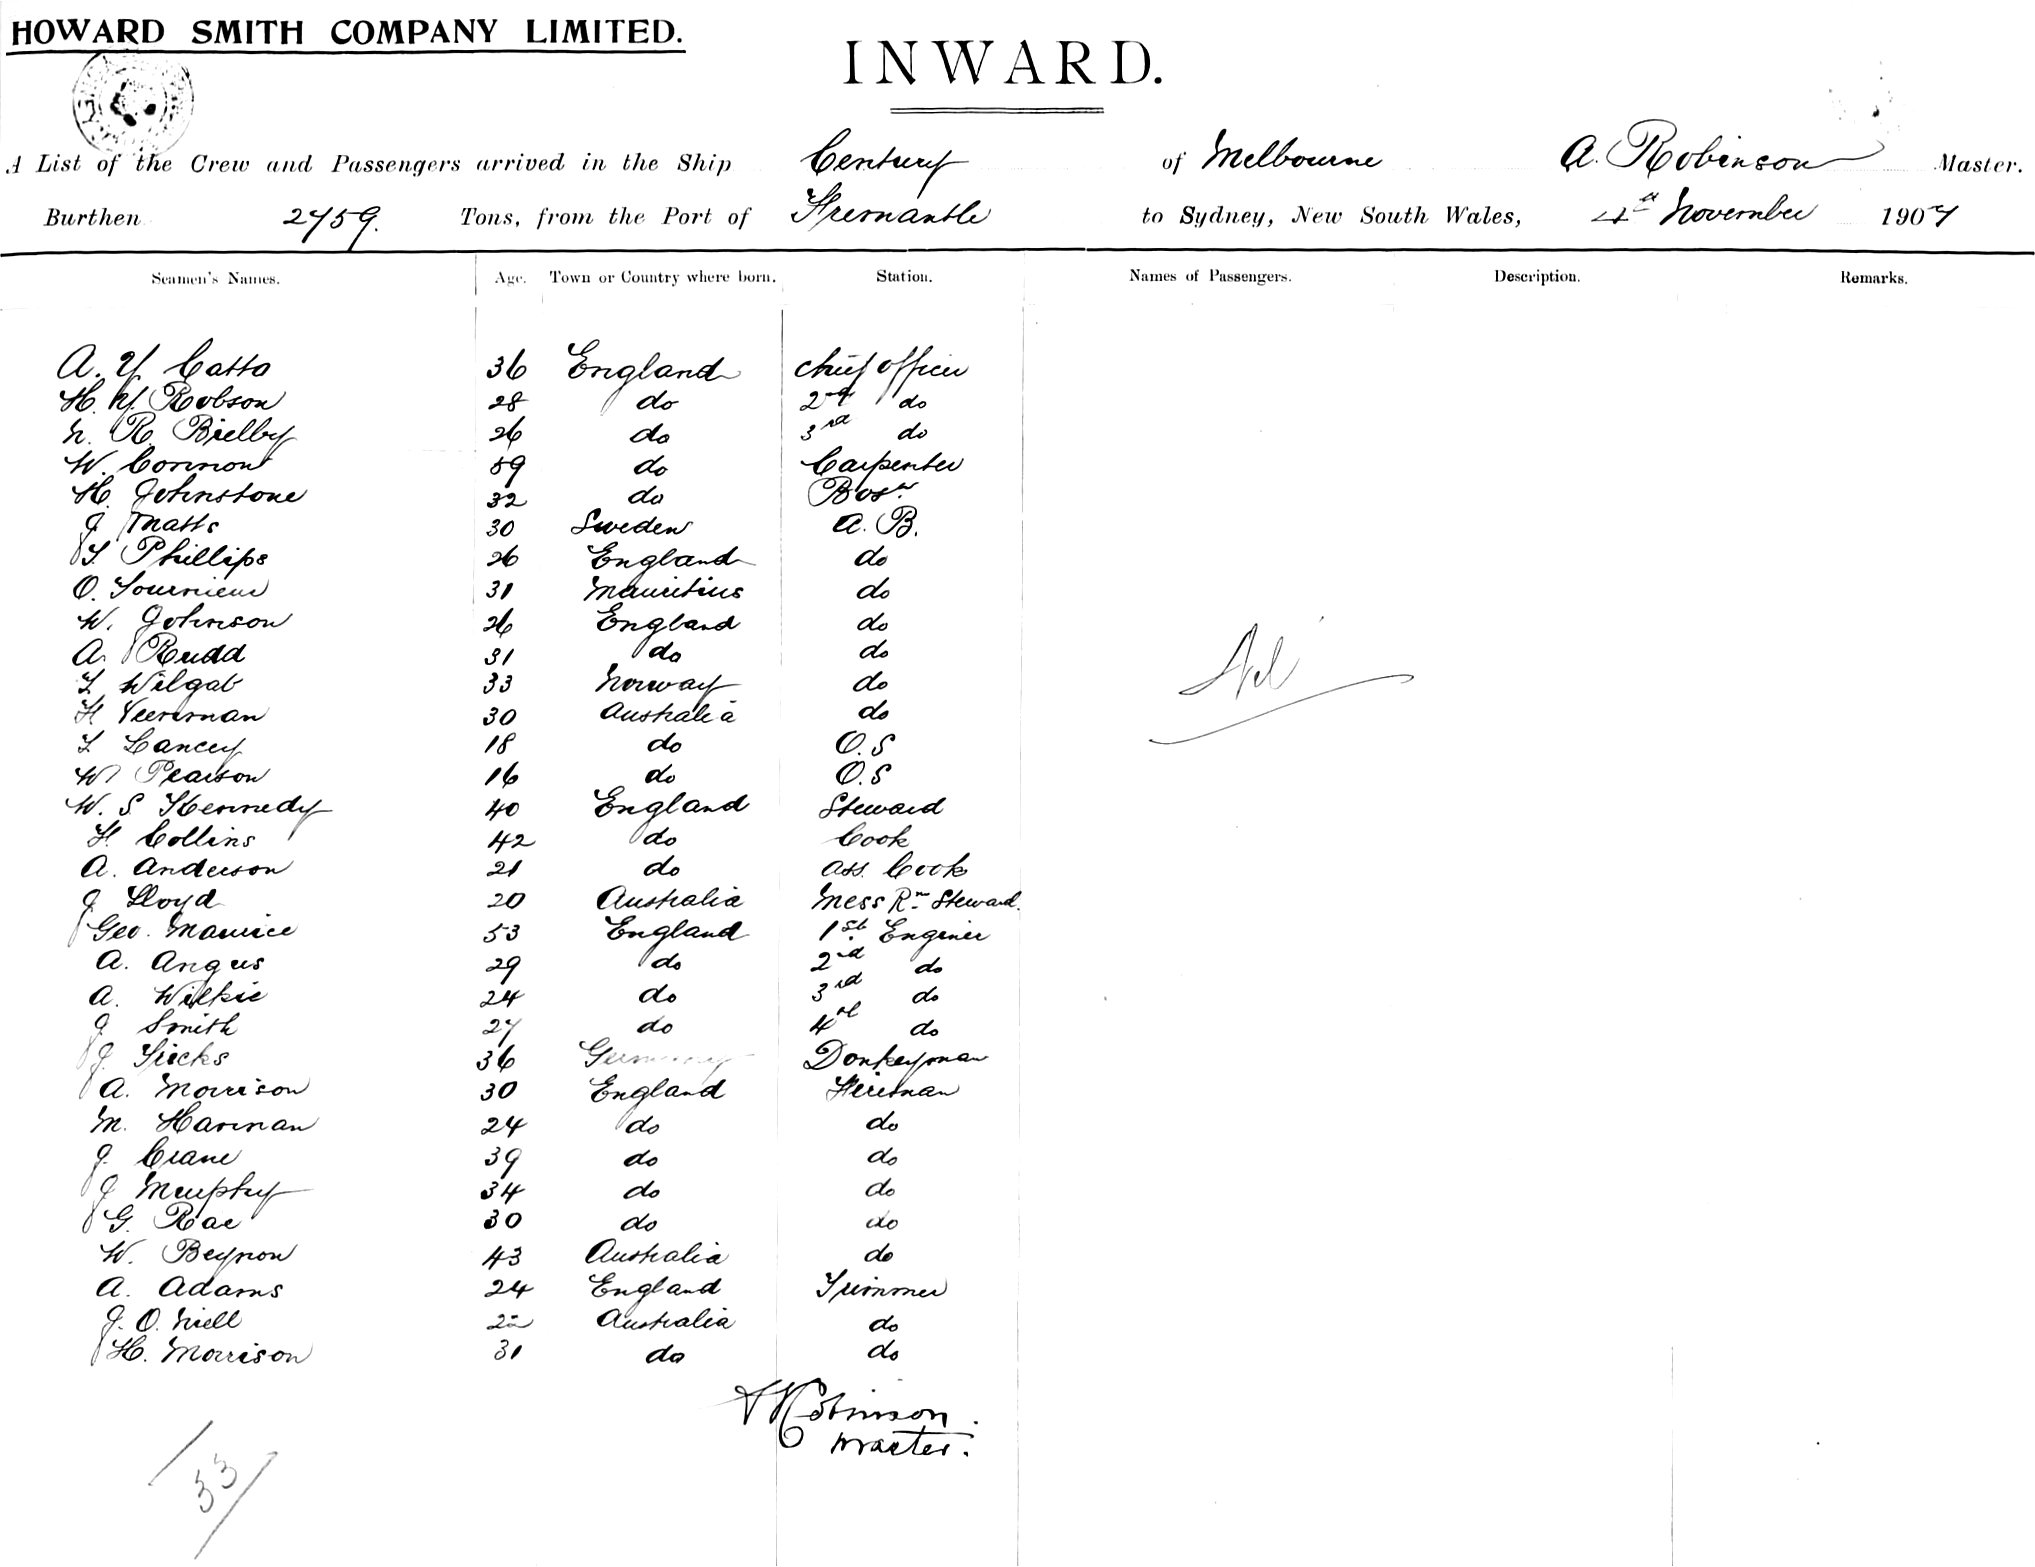 HOWARD SMITH COMPANY LIMITED.
INWARD.
A List of the Crew and Passengers arrived in the Ship Century of Melbourne A. Robinson Master.
Burthen 2759. Tons, from the Port of Fremantle to Sydney, New South Wales, 4th November 1907
Seamen's Names. Age. Town or Country where born. Station. Names of Passengers. Description. Remarks.
A. Y. Catto 36 England Chief Officer
H. W. Robson 28 do 2nd do
N. R. Bielby 26 do 3rd do
W. Connon 59 do Carpenter
H. Johnstone 32 do Bosn.
J Matts 30 Sweden A. B.
T. Phillips 26 England do
O. Fournieu 31 Mauritius do
W. Johnson 26 England do
A. Rudd 31 do do
T Wilgat 33 Norway do
H Veerman 30 Australia do
T Lancey 18 do O.S
W Pearson 16 do O.S
W. S Kennedy 40 England Steward
H. Collins 42 do Cook
A. Anderson 21 do Ass. Cook
J Lloyd 20 Australia Mess Rm Steward.
Geo. Maurice 53 England 1st Enginer
A. Angus 29 do 2nd do
A. Wilkie 24 do 3rd do
J Smith 27 do 4th do
J. Siecks 36 Germany Donkeyman
A. Morrison 30 England Fireman
M. Harman 24 do do
J. Crane 39 do do
J Murphy 34 do do
G. Rae 30 do do
W. Beynon 43 Australia do
A. Adams 24 England Trimmer
J. O. Niell 22 Australia do
H. Morrison 31 do do
Nil
A Robinson.
Master.
33